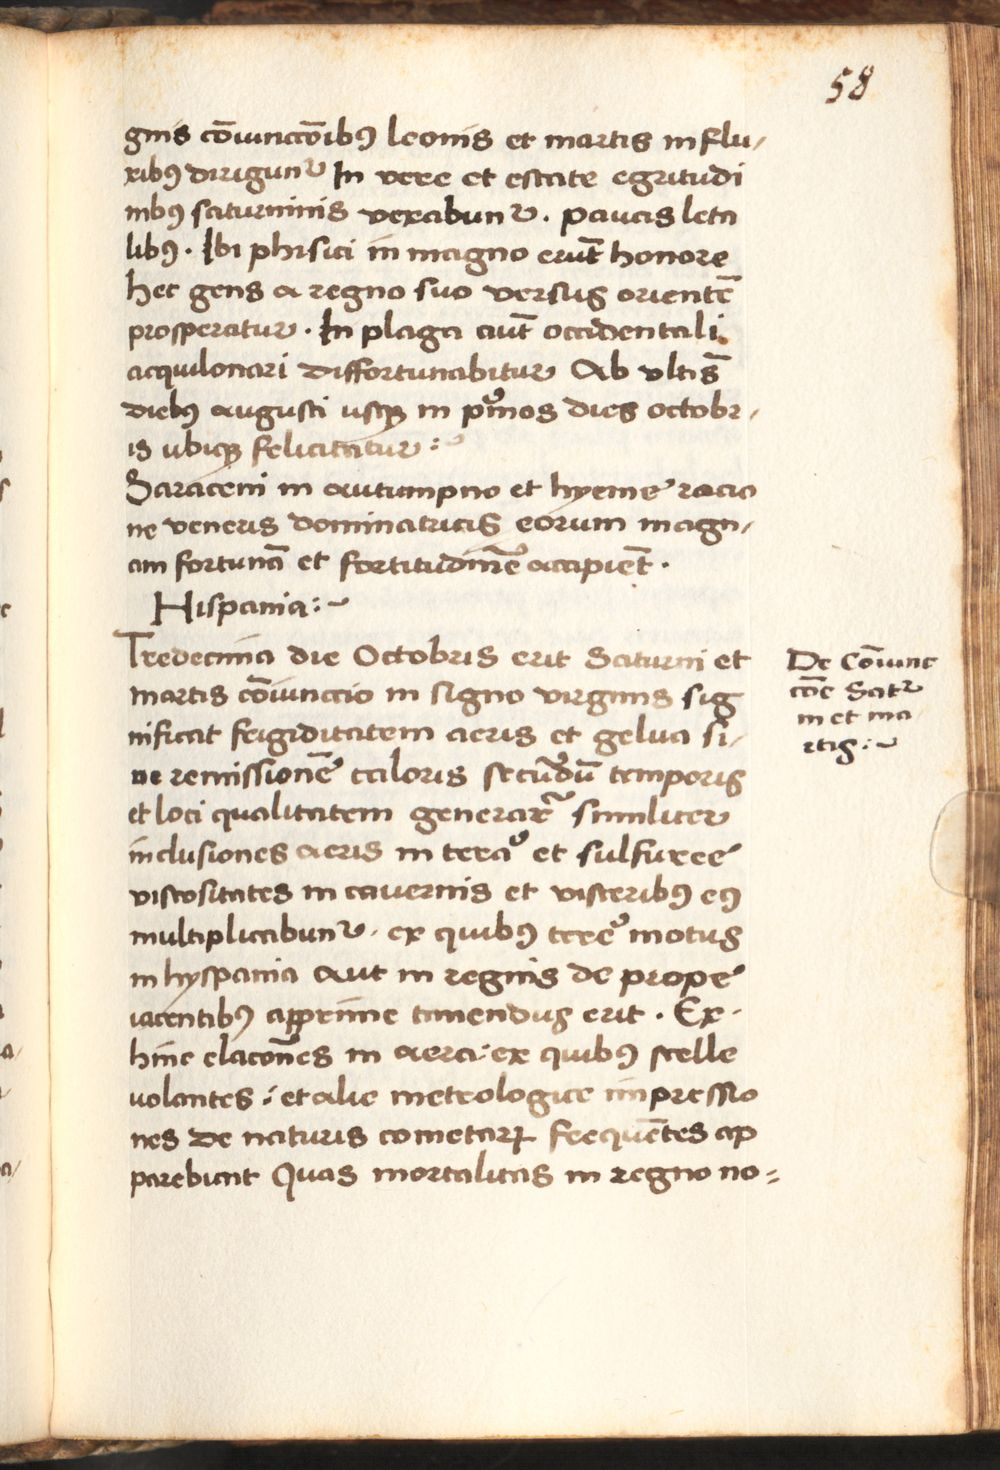 58
gnis cōiunccōibꝰ leonis et martis influ⸗
xibꝰ dirigunᷣ In vere et estate egritudi
nibꝰ saturninis vexabunᷣ . paucis leta
libꝰ . Ibi phisici in magno erūt honore
hec gens a regno suo versus orientē
prosperatur . In plaga aūt occidentali
acquilonari diffortunabitur Ab vltīs
diebꝰ augusti usqꝫ in pͥmos dies octobr⸗
is ubiqꝫ felicitatur :~
Saraceni in autumpno et hyeme racio
ne veneris dominatricis eorum magn⸗
am fortunā et fortitudinē accipiēt .
Hispania :~
Tredecima die Octobris erit Saturni et
martis cōiunccio in signo virginis sig
nificat frigiditatem aeris et gelua si⸗
ne remissionē caloris secūdū temporis
et loci qualitatem generarᷣ similiter
inclusiones aeris in terͣa et sulfuree
viscositates in cavernis et visceribꝰ eꝰ
multiplicabunᷣ . ex quibꝰ terͤe motus
in hyspania aut in regnis de prope
iacentibꝰ apprime timendus erit . Ex⸗
hinc elacōnes in aera : ex quibꝰ stelle
volantes : et alie metrologice impressio
nes de naturis cometarꝝ frequētes ap
parebunt Quas mortalitas in regno no⸗
De Cōiunc
cōe Satᷣ
ni et ma
rtis :~